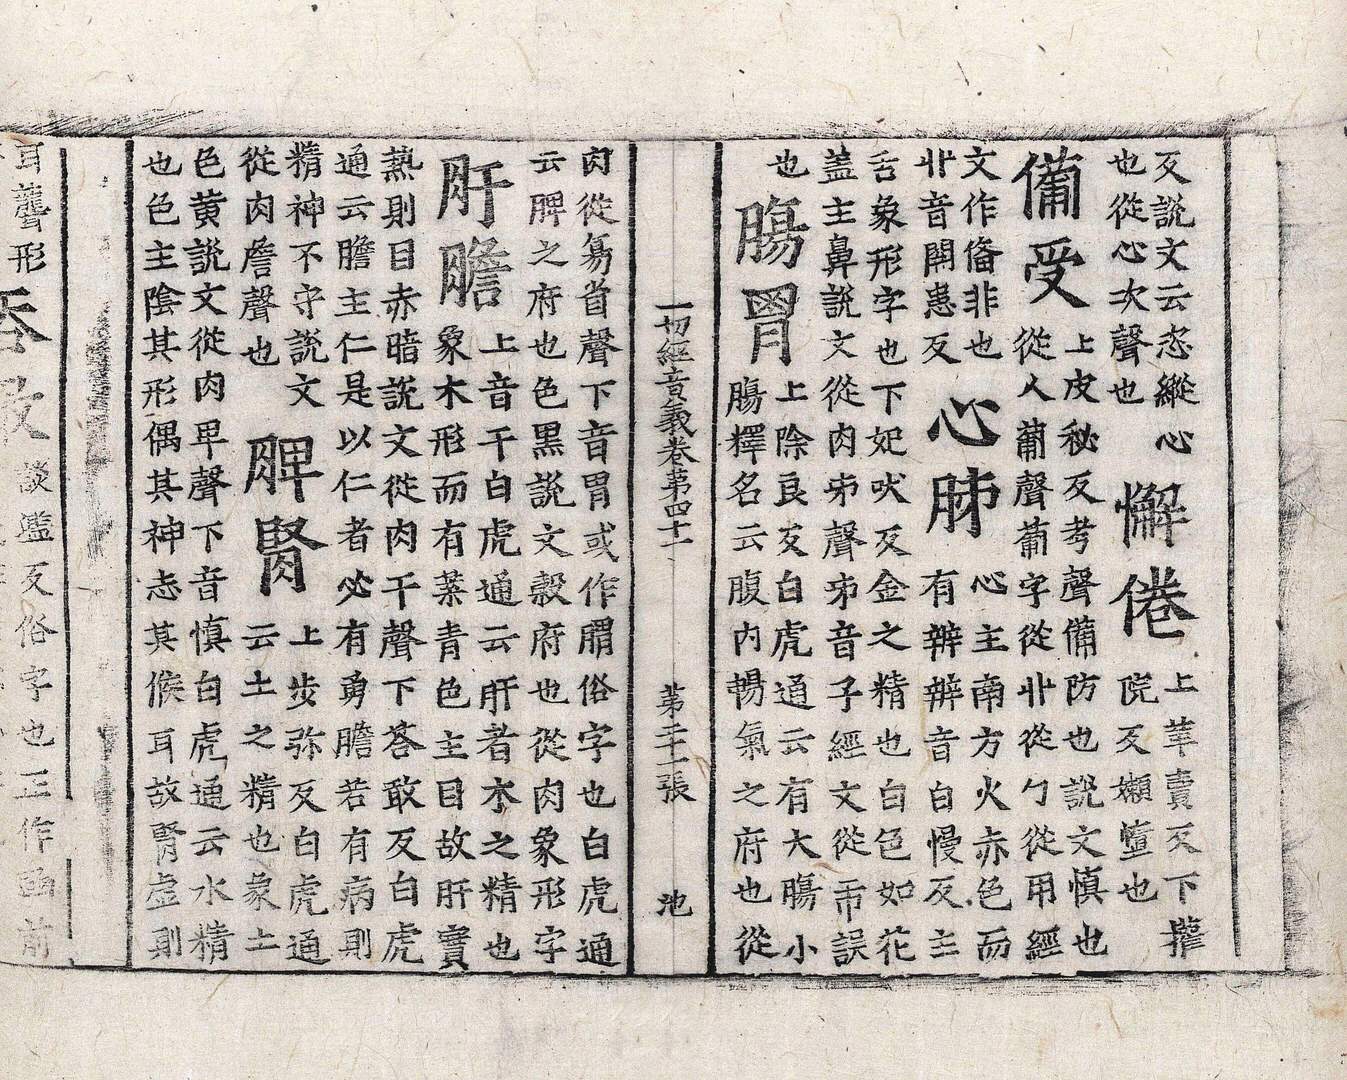 反說文云恣縱心也從心次聲也懈倦上革賣反下攉院反嬾也
備受上皮秘反考聲備防也說文慎也從人𤰇聲𤰇字從丱從勹從用經
文作俻非也丱音關患反心肺心主南方火赤色而有辦辦音白慢反主
舌象形字也下妃吠反金之精也白色如花盖主鼻說文從肉巿聲巿音子經文從帀誤
也腸胃上除良反白虎通云有大腸小腸釋名云腹內暢氣之府也從
一切經音義卷第四十一 第三十一張 池
肉從昜省聲下音胃或作腪俗字也白虎通云脾之府也色黑說文穀府也從肉象形字
肝膽上音干白虎通云肝者木之精也象木形而有葉青色主目故肝實
熱則目赤暗說文從肉干聲下荅敢反白虎通云膽主仁是以仁者必有勇膽若有病則
精神不守說文從肉詹聲也脾腎上步弥反白虎通云土之精也象土
色黄說文從肉卑聲下音慎白虎通云水精也色主陰其形偶其神志其候耳故腎虛則
耳聾形 談濫反俗字也正作 前